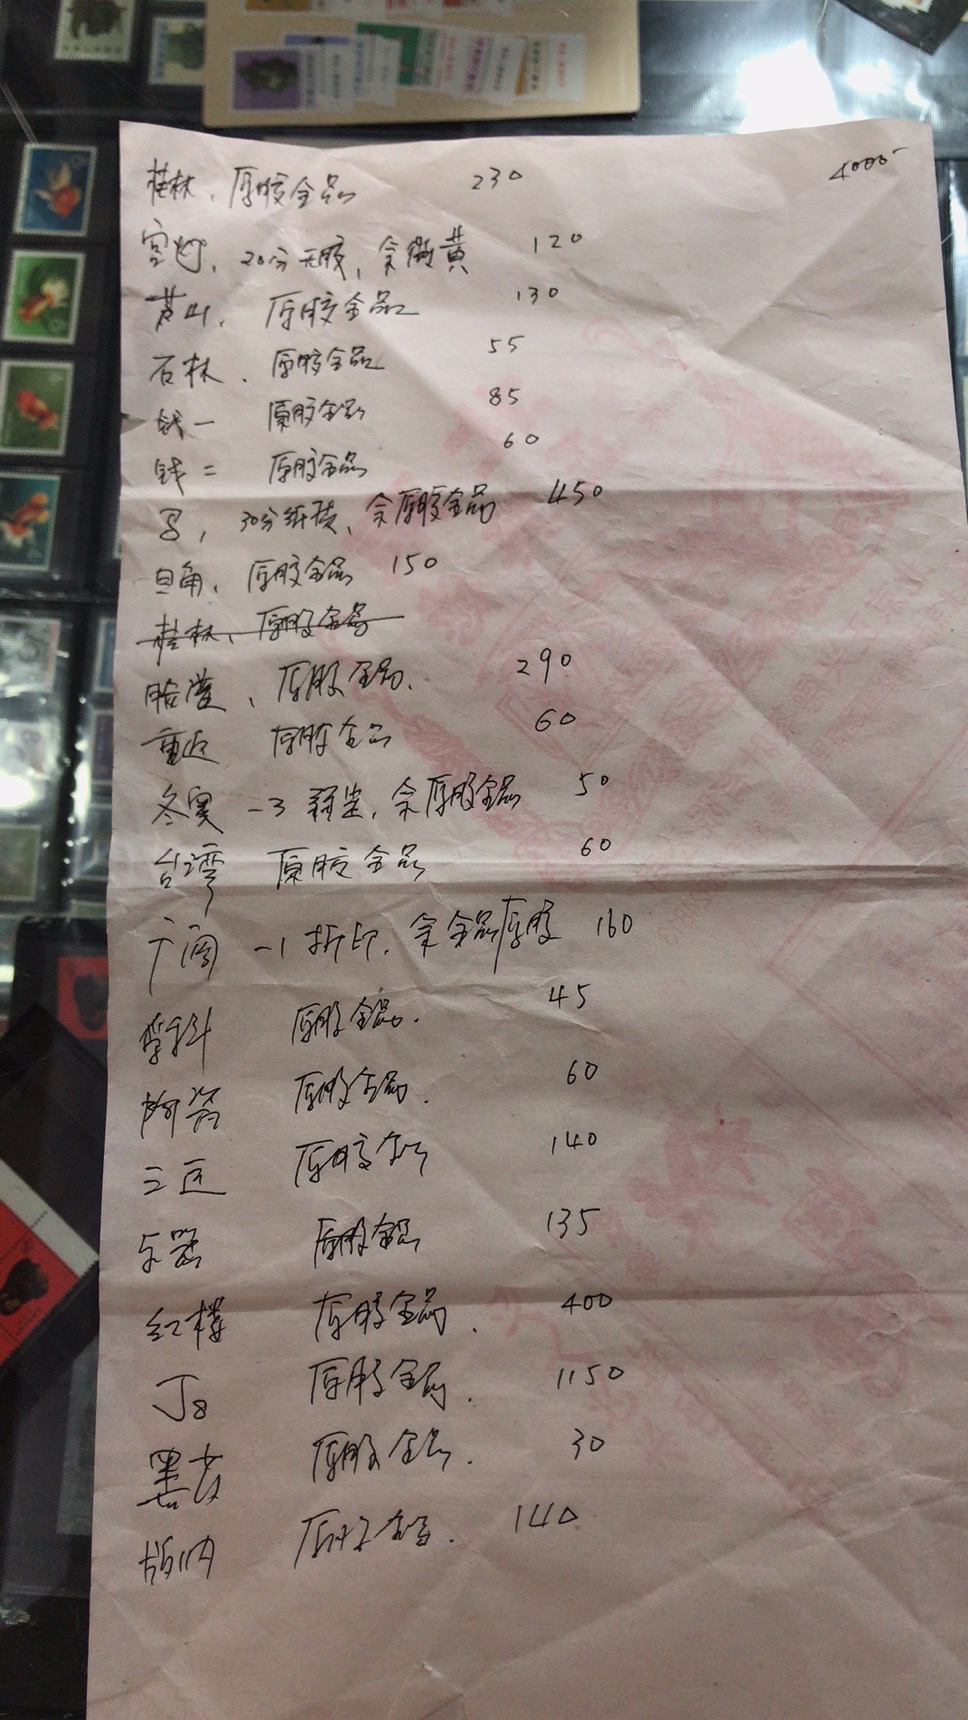 桂林、原胶全品 230 4000-
宫灯、20分无胶、余微黄 120
芦山、原胶全品 130
石林、原胶全品 55
钱一 原胶全品 85
钱二 原胶全品 60
弓, 30分纸损、余原胶全品 450
旦角、原胶全品 150
桂林、原胶全品
脸谱、原胶全品. 290
重返 原胶全品 60
冬奥 -3 弱尖, 余原胶全品 50
台湾 原胶全品 60
于阗 -1 折印, 余全品原胶 160
原胶全品. 45
陶瓷 原胶全品. 60
原胶全品 140
乐器 原胶全品 135
红楼 原胶全品. 400
J8 原胶全品. 1150
原胶全品. 30
版纳 原胶全品. 140